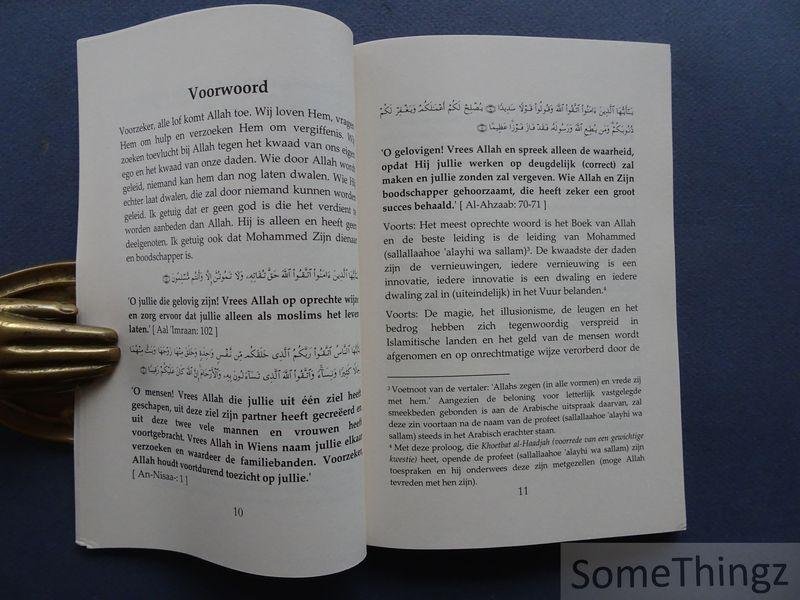 Voorwoord
Voorzeker, alle lof komt Allah toe. Wij loven Hem, vragen
Hem om hulp en verzoeken Hem om vergiffenis. Wij
zoeken toevlucht bij Allah tegen het kwaad van ons eigen
ego en het kwaad van onze daden. Wie door Allah wordt
geleid, niemand kan hem dan nog laten dwalen. Wie Hij
echter laat dwalen, die zal door niemand kunnen worden
geleid. Ik getuig dat er geen god is die het verdient te
worden aanbeden dan Allah. Hij is alleen en heeft geen
deelgenoten. Ik getuig ook dat Mohammed Zijn dienaar
en boodschapper is.
يَٰٓأَيُّهَا ٱلَّذِينَ ءَامَنُواْ ٱتَّقُواْ ٱللَّهَ حَقَّ تُقَاتِهِۦ وَلَا تَمُوتُنَّ إِلَّا وَأَنتُم مُّسْلِمُونَ
'O jullie die gelovig zijn! Vrees Allah op oprechte wijze
en zorg ervoor dat jullie alleen als moslims het leven
laten.' [ Aal 'Imraan: 102 ]
يَٰٓأَيُّهَا ٱلنَّاسُ ٱتَّقُواْ رَبَّكُمُ ٱلَّذِى خَلَقَكُم مِّن نَّفْسٍ وَٰحِدَةٍ وَخَلَقَ مِنْهَا زَوْجَهَا وَبَثَّ مِنْهُمَا
رِجَالًا كَثِيرًا وَنِسَآءً وَٱتَّقُواْ ٱللَّهَ ٱلَّذِى تَسَآءَلُونَ بِهِۦ وَٱلْأَرْحَامَ إِنَّ ٱللَّهَ كَانَ عَلَيْكُمْ رَقِيبًا
'O mensen! Vrees Allah die jullie uit één ziel heeft
geschapen, uit deze ziel zijn partner heeft gecreëerd en
uit deze twee vele mannen en vrouwen heeft
voortgebracht. Vrees Allah in Wiens naam jullie elkaar
verzoeken en waardeer de familiebanden. Voorzeker,
Allah houdt voortdurend toezicht op jullie.'
[ An-Nisaa-: 1 ]
10
يَٰٓأَيُّهَا ٱلَّذِينَ ءَامَنُواْ ٱتَّقُواْ ٱللَّهَ وَقُولُواْ قَوْلًا سَدِيدًا ۝ يُصْلِحْ لَكُمْ أَعْمَٰلَكُمْ وَيَغْفِرْ لَكُمْ
ذُنُوبَكُمْ وَمَن يُطِعِ ٱللَّهَ وَرَسُولَهُۥ فَقَدْ فَازَ فَوْزًا عَظِيمًا
'O gelovigen! Vrees Allah en spreek alleen de waarheid,
opdat Hij jullie werken op deugdelijk (correct) zal
maken en jullie zonden zal vergeven. Wie Allah en Zijn
boodschapper gehoorzaamt, die heeft zeker een groot
succes behaald.' [ Al-Ahzaab: 70-71 ]
Voorts: Het meest oprechte woord is het Boek van Allah
en de beste leiding is de leiding van Mohammed
(sallallaahoe 'alayhi wa sallam)³. De kwaadste der daden
zijn de vernieuwingen, iedere vernieuwing is een
innovatie, iedere innovatie is een dwaling en iedere
dwaling zal in (uiteindelijk) in het Vuur belanden.⁴
Voorts: De magie, het illusionisme, de leugen en het
bedrog hebben zich tegenwoordig verspreid in
Islamitische landen en het geld van de mensen wordt
afgenomen en op onrechtmatige wijze verorberd door de
³ Voetnoot van de vertaler: 'Allahs zegen (in alle vormen) en vrede zij
met hem.' Aangezien de beloning voor letterlijk vastgelegde
smeekbeden gebonden is aan de Arabische uitspraak daarvan, zal
deze zin voortaan na de naam van de profeet (sallallaahoe 'alayhi wa
sallam) steeds in het Arabisch erachter staan.
⁴ Met deze proloog, die Khoetbat al-Haadjah (voorrede van een gewichtige
kwestie) heet, opende de profeet (sallallaahoe 'alayhi wa sallam) zijn
toespraken en hij onderwees deze zijn metgezellen (moge Allah
tevreden met hen zijn).
11
SomeThingz